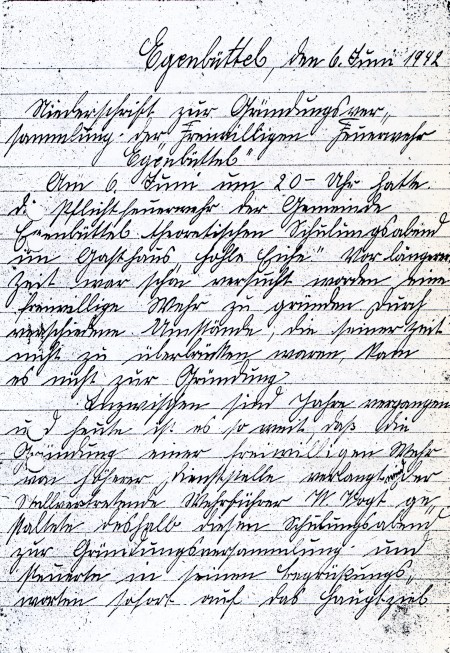 Egenbüttel, den 6. Juni 1942
Niederschrift zur Gründungsver„
sammlung der Freiwilligen Feuerwehr
Egenbüttel"
Am 6. Juni um 20 – Uhr hatte
di Pflichtfeuerwehr der Gemeinde
Egenbüttel theoretischen Schulungsabend
im Gasthaus „Hohle Eiche". Vor längerer
Zeit war schon versucht worden eine
freiwillige Wehr zu gründen. Durch
verschiedene Umstände, die seiner Zeit
nicht zu überbrücken waren, kam
es nicht zur Gründung.
Inzwischen sind Jahre vergangen
und heute ist es so weit daß die
Gründung einer freiwilligen Wehr
von höherer Dienststelle verlangt wird der
Stellvertretende Wehrführer W Vogt ge„
staltete deshalb diesen Schulungsabend
zur Gründungsversammlung und
steuerte in seinen begrüßungs„
worten sofort auf das Hauptziel